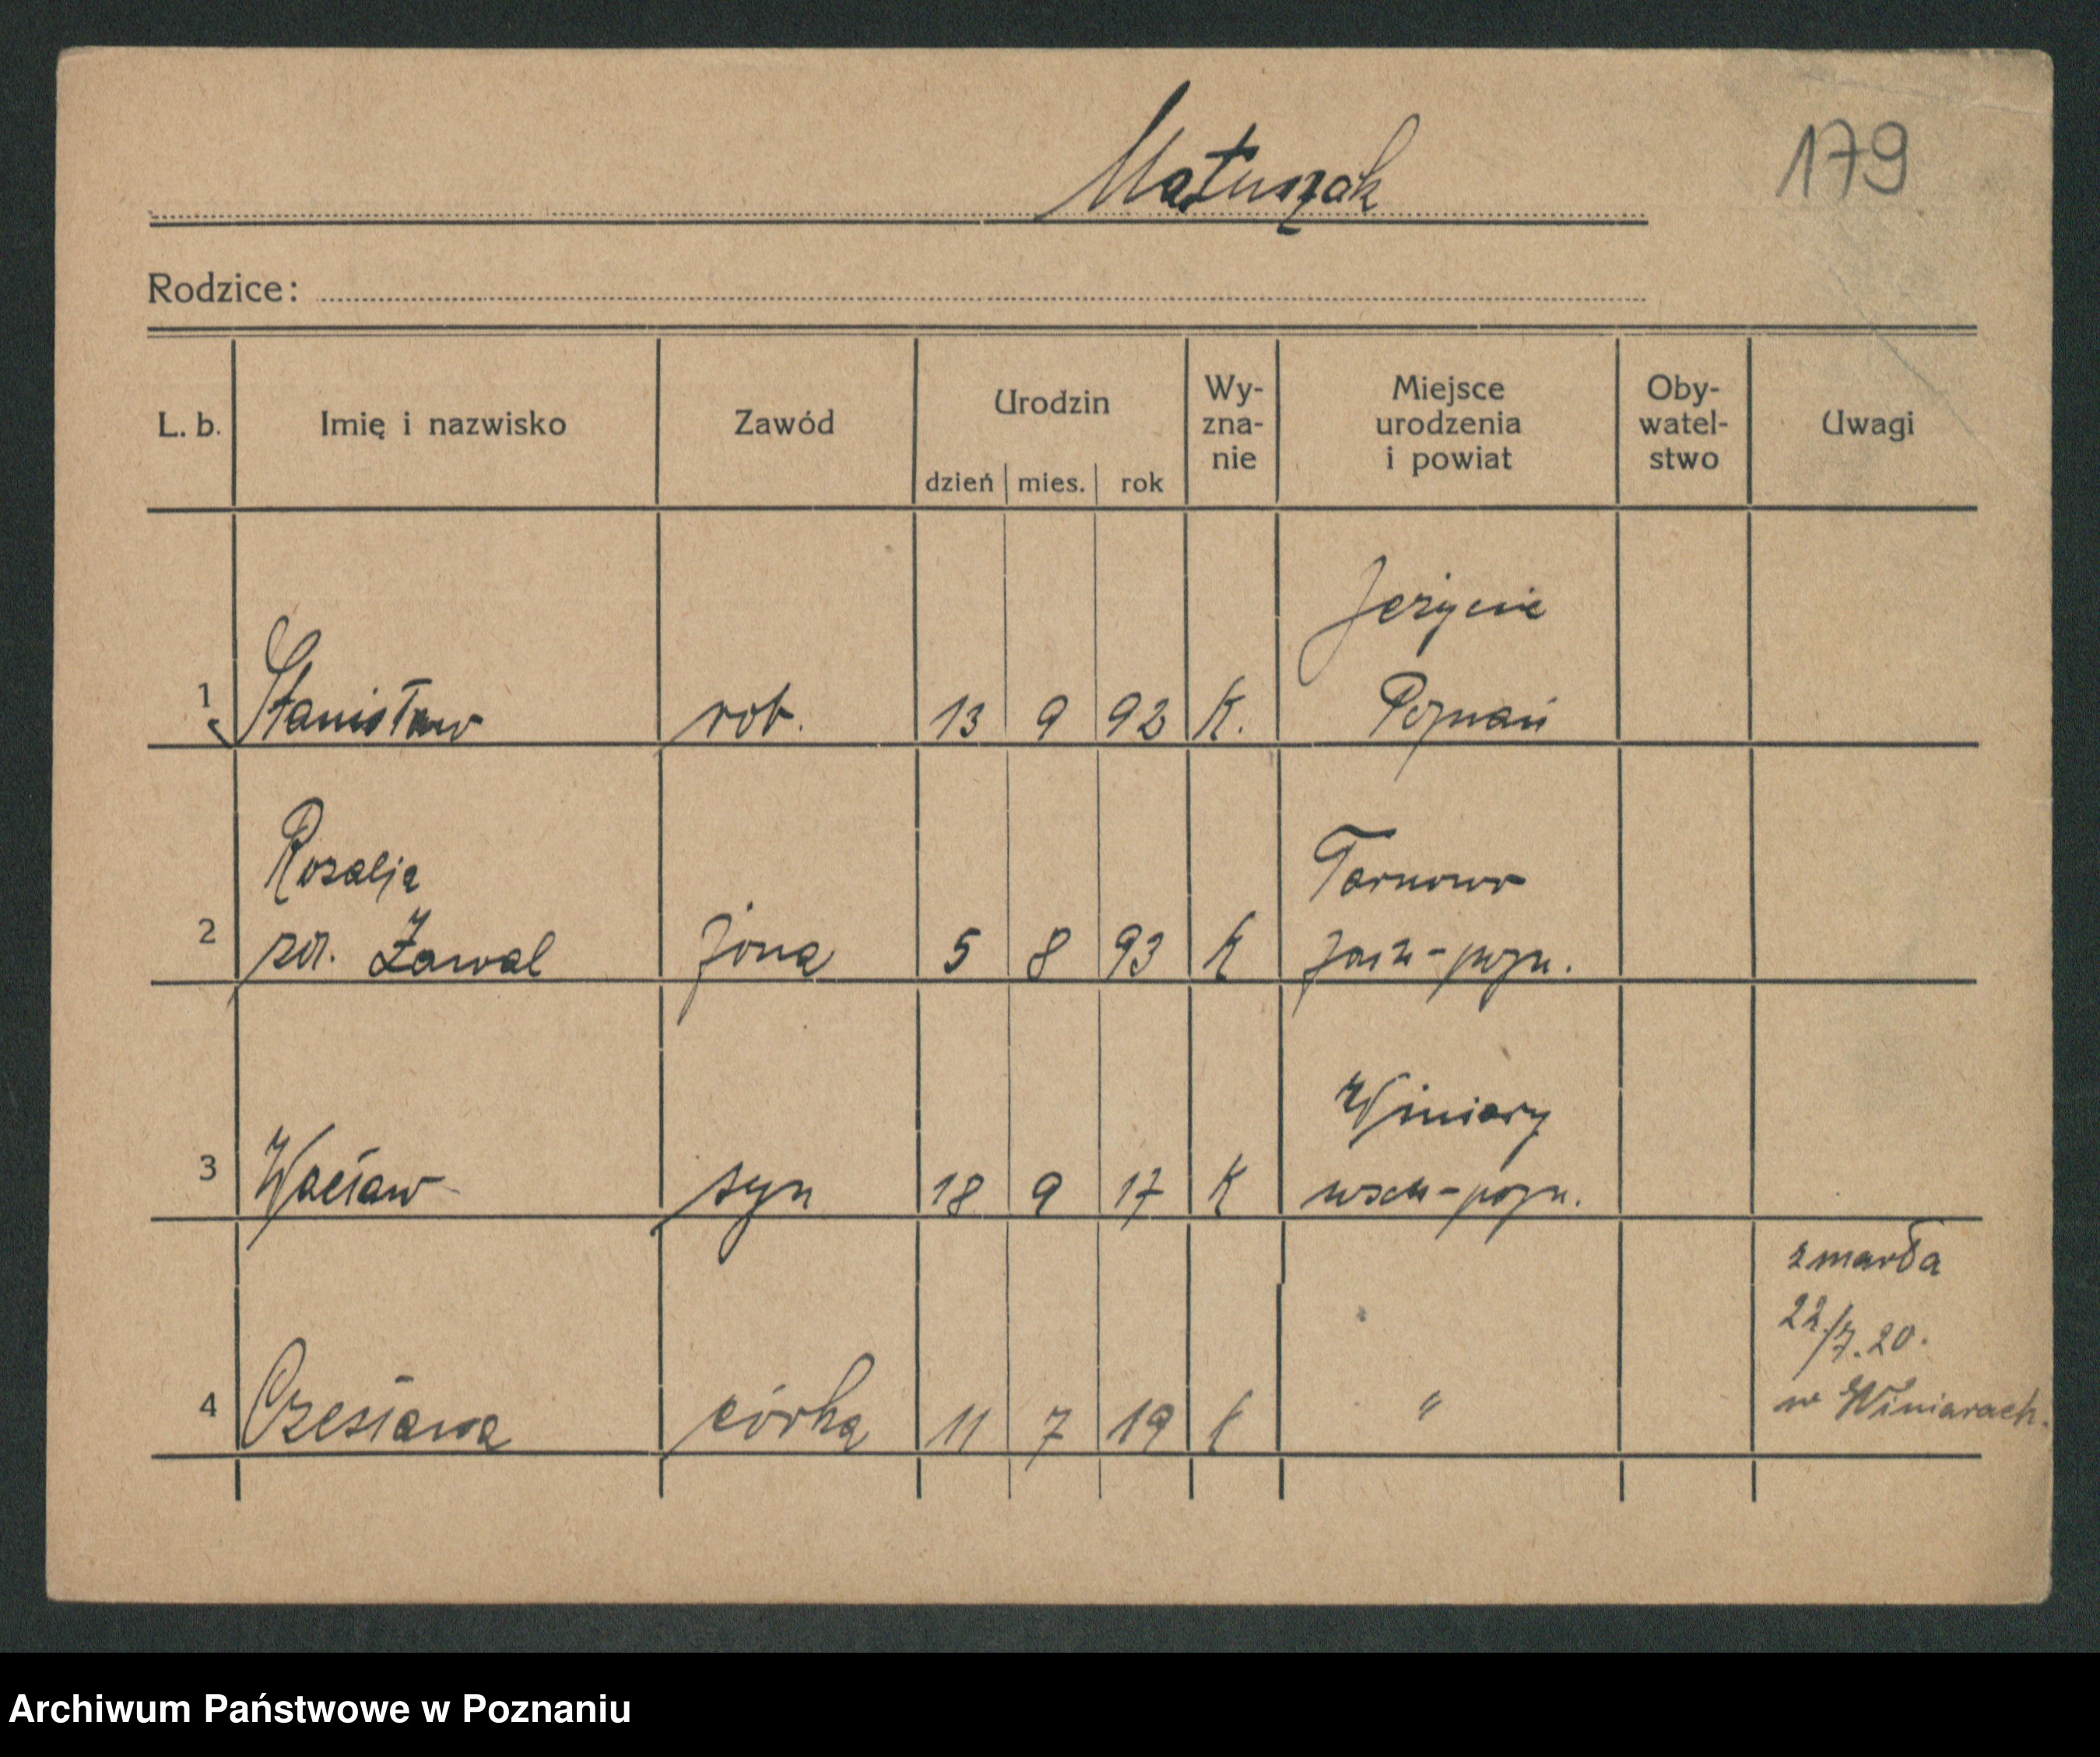 Matuszak
179
Rodzice:
L. b.
Imię i nazwisko
Zawód
Urodzin
dzień mies. rok
Wy-
zna-
nie
Miejsce
urodzenia
i powiat
Oby-
watel-
stwo
Uwagi
1 Stanisław rob. 13 9 92 K.
Jeżyce
Poznań
Rozalja
2 Zawal żona 5 8 93 K
Tarnowo
zach-pozn.
3 Wacław syn 18 9 17 K
Winiary
wsch-pozn.
4 Czesława córka 11 7 19 k "
zmarła
22/7.20.
w Winiarach.
Archiwum Państwowe w Poznaniu